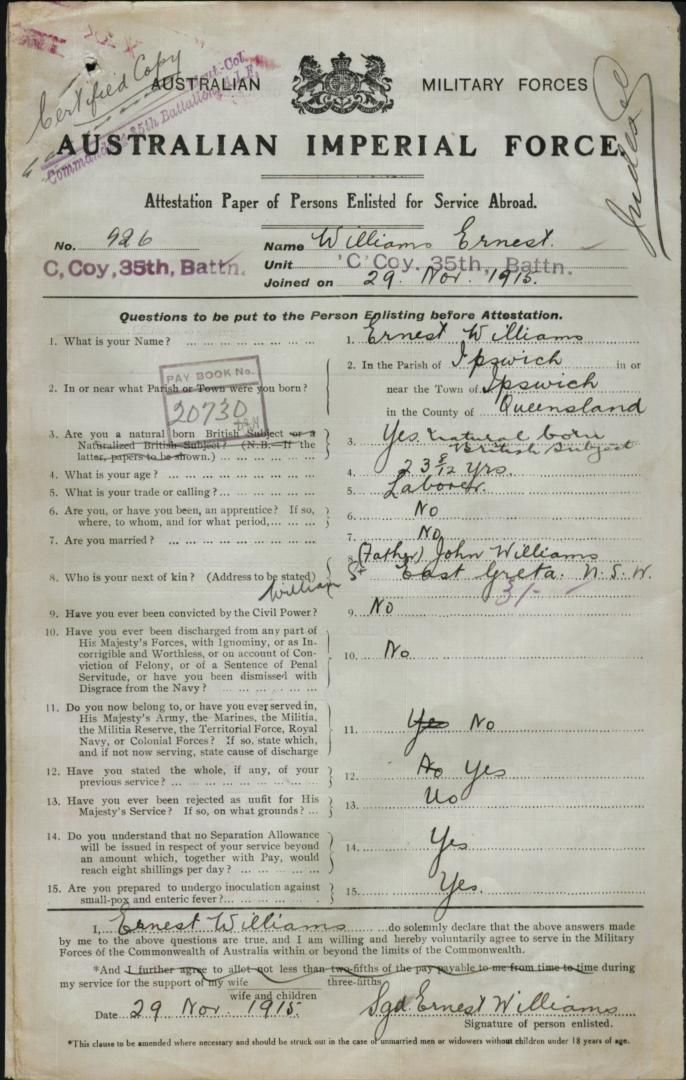 Certified Copy
Lieut-Col.
Commanding 35th Battalion, A.I.F.
AUSTRALIAN MILITARY FORCES
AUSTRALIAN IMPERIAL FORCE.
Attestation Paper of Persons Enlisted for Service Abroad.
No. 926 Name Williams Ernest.
C, Coy, 35th, Battn. Unit 'C' Coy. 35th, Battn.
Joined on 29 Nov. 1915.
Questions to be put to the Person Enlisting before Attestation.
1. What is your Name? 1. Ernest Williams
PAY BOOK No.
20730
2. In or near what Parish or Town were you born? 2. In the Parish of Ipswich in or
near the Town of Ipswich
in the County of Queensland
3. Are you a natural born British Subject or a
Naturalized British Subject? (N.B.—If the
latter, papers to be shown.) 3. Yes. Natural born
British Subject
4. What is your age? 4. 23 8/12 yrs.
5. What is your trade or calling? 5. Laborer.
6. Are you, or have you been, an apprentice? If so,
where, to whom, and for what period, 6. No
7. Are you married? 7. No
8. Who is your next of kin? (Address to be stated) 8. (Father) John Williams
William St East Greta. N.S.W.
3/-
9. Have you ever been convicted by the Civil Power? 9. No
10. Have you ever been discharged from any part of
His Majesty's Forces, with Ignominy, or as In-
corrigible and Worthless, or on account of Con-
viction of Felony, or of a Sentence of Penal
Servitude, or have you been dismissed with
Disgrace from the Navy? 10. No
11. Do you now belong to, or have you ever served in,
His Majesty's Army, the Marines, the Militia,
the Militia Reserve, the Territorial Force, Royal
Navy, or Colonial Forces? If so, state which,
and if not now serving, state cause of discharge 11. Yes No
12. Have you stated the whole, if any, of your
previous service? 12. No Yes
13. Have you ever been rejected as unfit for His
Majesty's Service? If so, on what grounds? 13. No
14. Do you understand that no Separation Allowance
will be issued in respect of your service beyond
an amount which, together with Pay, would
reach eight shillings per day? 14. Yes
15. Are you prepared to undergo inoculation against
small-pox and enteric fever? 15. Yes.
I, Ernest Williams do solemnly declare that the above answers made
by me to the above questions are true, and I am willing and hereby voluntarily agree to serve in the Military
Forces of the Commonwealth of Australia within or beyond the limits of the Commonwealth.
*And I further agree to allot not less than two-fifths of the pay payable to me from time to time during
three-fifths
my service for the support of my wife
wife and children
Date 29 Nov. 1915. Sgd. Ernest Williams
Signature of person enlisted.
*This clause to be amended where necessary and should be struck out in the case of unmarried men or widowers without children under 18 years of age.